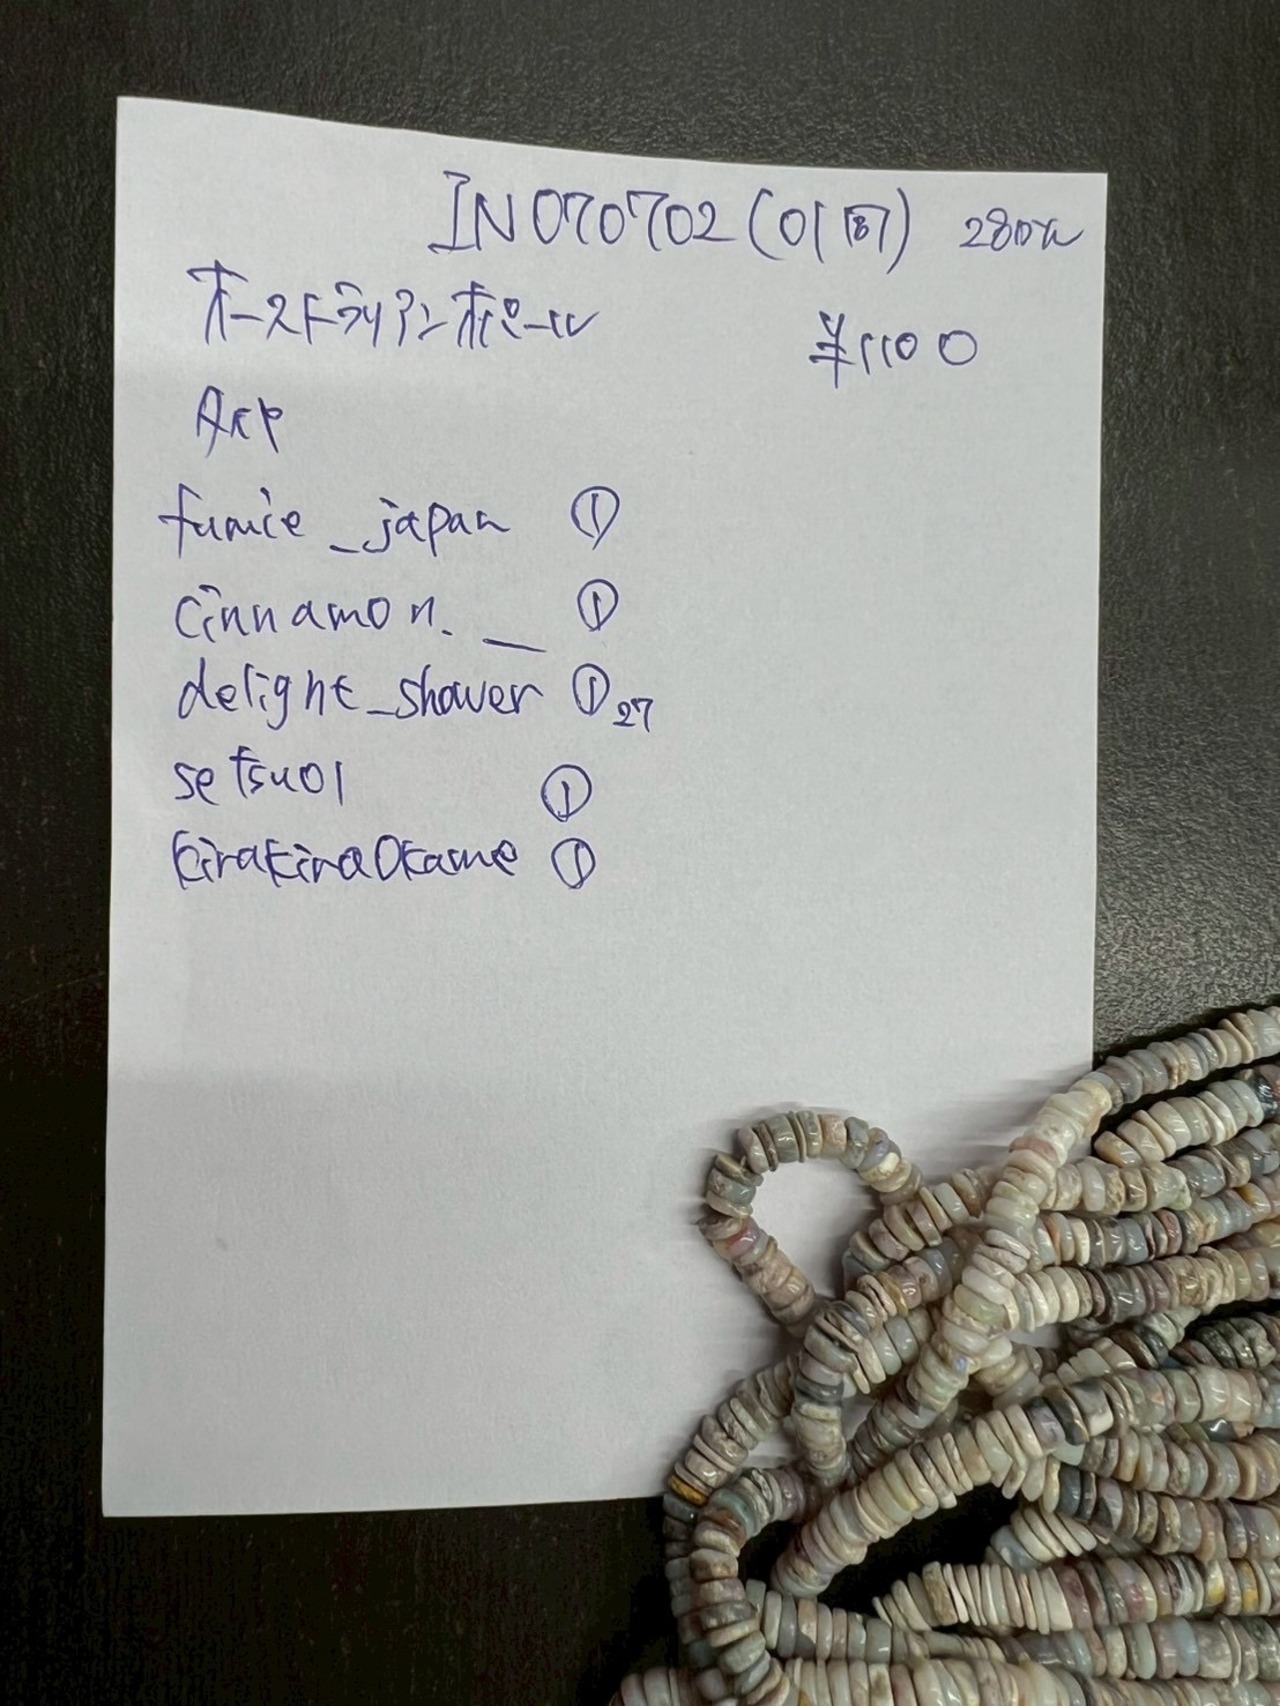 IN070702 (01)
オーストラリアンオパール ¥1100
fumie_japan ①
cinnamon._ ①
delight_shower ① 27
setsu01 ①
kirakiraokame ①